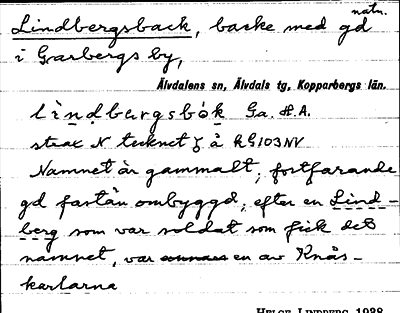 natn.
Lindbergsback, backe med gd
i Garbergs by,
Älvdalens sn, Älvdals tg, Kopparbergs län.
lìndbærgsbók Ga. H.A.
strax N tecknet ζ å RG103NV
Namnet är gammalt, fortfarande
gd fastän ombyggd, efter en Lind-
berg som var soldat som fick det
namnet, var en av Knås-
karlarna
HELGE LINDBERG 1938